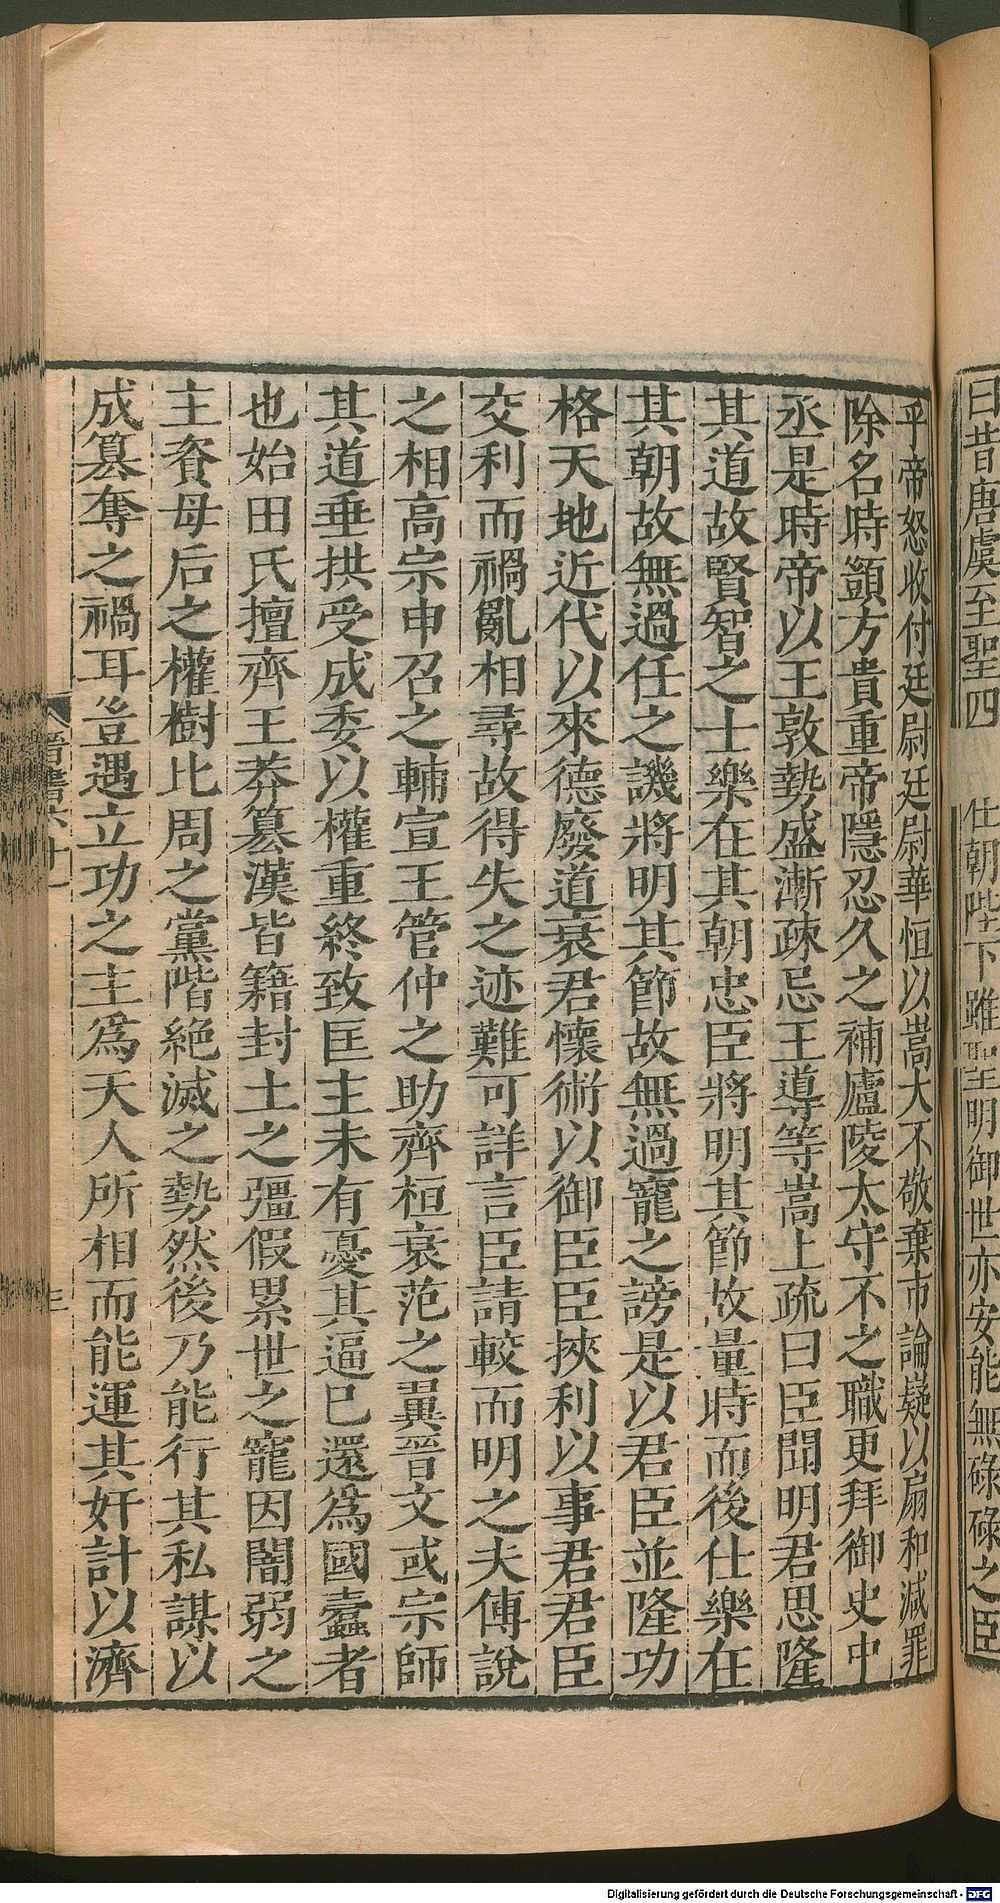 曰昔唐虞至聖四
仕朝陛下雖聖明御世亦安能無碌碌之臣
乎帝怒收付廷尉廷尉華恒以嵩大不敬棄市論嶷以扇和減罪
除名時顗方貴重帝隱忍久之補廬陵太守不之職更拜御史中
丞是時帝以王敦勢盛漸疎忌王導等嵩上疏曰臣聞明君思隆
其道故賢智之士樂在其朝忠臣將明其節故量時而後仕樂在
其朝故無過任之譏將明其節故無過寵之謗是以君臣並隆功
格天地近代以來德發道衰君懷術以御臣臣挾利以事君君臣
交利而禍亂相尋故得失之迹難可詳言臣請較而明之夫傅說
之相高宗申召之輔宣王管仲之助齊桓衰范之翼晉文或宗師
其道垂拱受成委以權重終致匡主未有憂其逼已還爲國蠹者
也始田氏擅齊王莽篡漢皆籍封土之彊假累世之寵因闇弱之
主資母后之權樹比周之黨階絶滅之勢然後乃能行其私謀以
成篡奪之禍耳豈遇立功之主爲天人所相而能運其奸計以濟
三
Digitalisierung gefördert durch die Deutsche Forschungsgemeinschaft - DFG